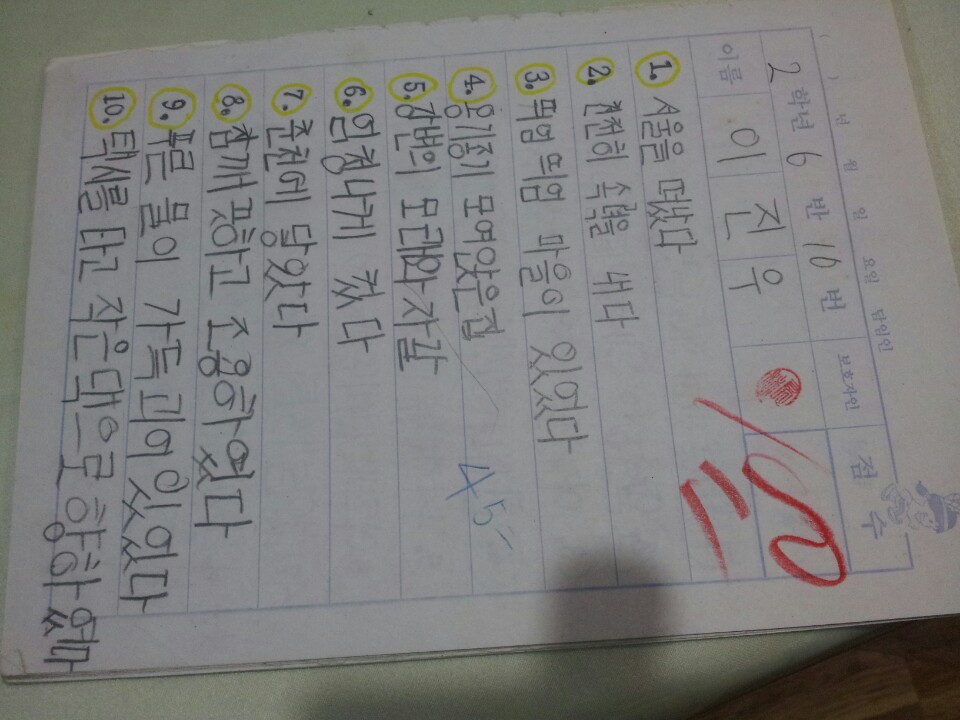 ( ) 년 월 일 요일 담임인
2 학년 6 반 16 번 보호자인 검 수
이름 이 진 우
1. 서울을 떠났다
2. 천천히 속력을 내다
3. 띄엄 띄엄 마을이 있었다
4. 옹기종기 모여앉은집
5. 강변의 모래와자갈
6. 엄청나게 컸다
7. 춘천에 닿았다
8. 참깨끗하고 조용하였다
9. 푸른 물이 가득괴어있었다
10. 택시를 타고 작은댁으로 향하였다
50
45